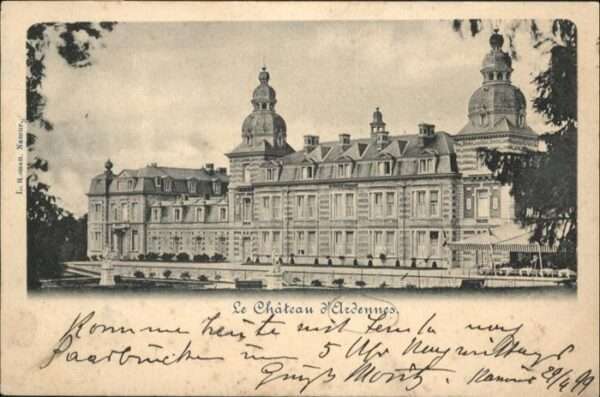 Le Château d'Ardennes.
Komme heute mit
Saarbrücken um 5 Uhr Nachmittags
Gruß Moritz. Namur 29/4 99
Namur.